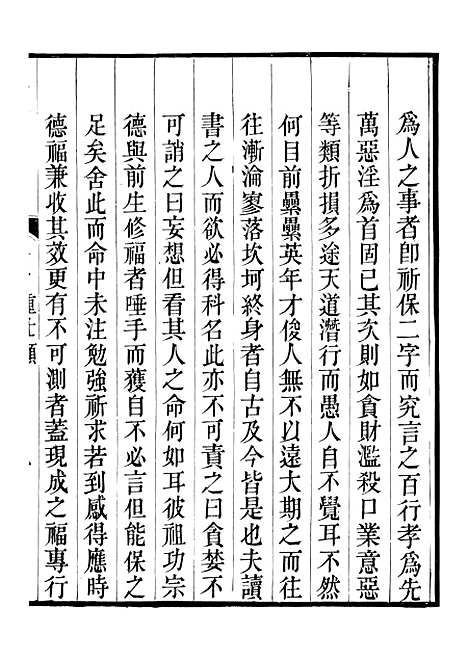 爲人之事者卽祈保二字而究言之百行孝爲先
萬惡淫爲首固已其次則如貪財濫殺口業意惡
等類折損多途天道潛行而愚人自不覺耳不然
何目前纍纍英年才俊人無不以遠大期之而往
往漸淪寥落坎坷終身者自古及今皆是也夫讀
書之人而欲必得科名此亦不可責之曰貪婪不
可誚之曰妄想但看其人之命何如耳彼祖功宗
德與前生修福者唾手而獲自不必言但能保之
足矣舍此而命中未注勉強祈求若到感得應時
德福兼收其效更有不可測者蓋現成之福專行